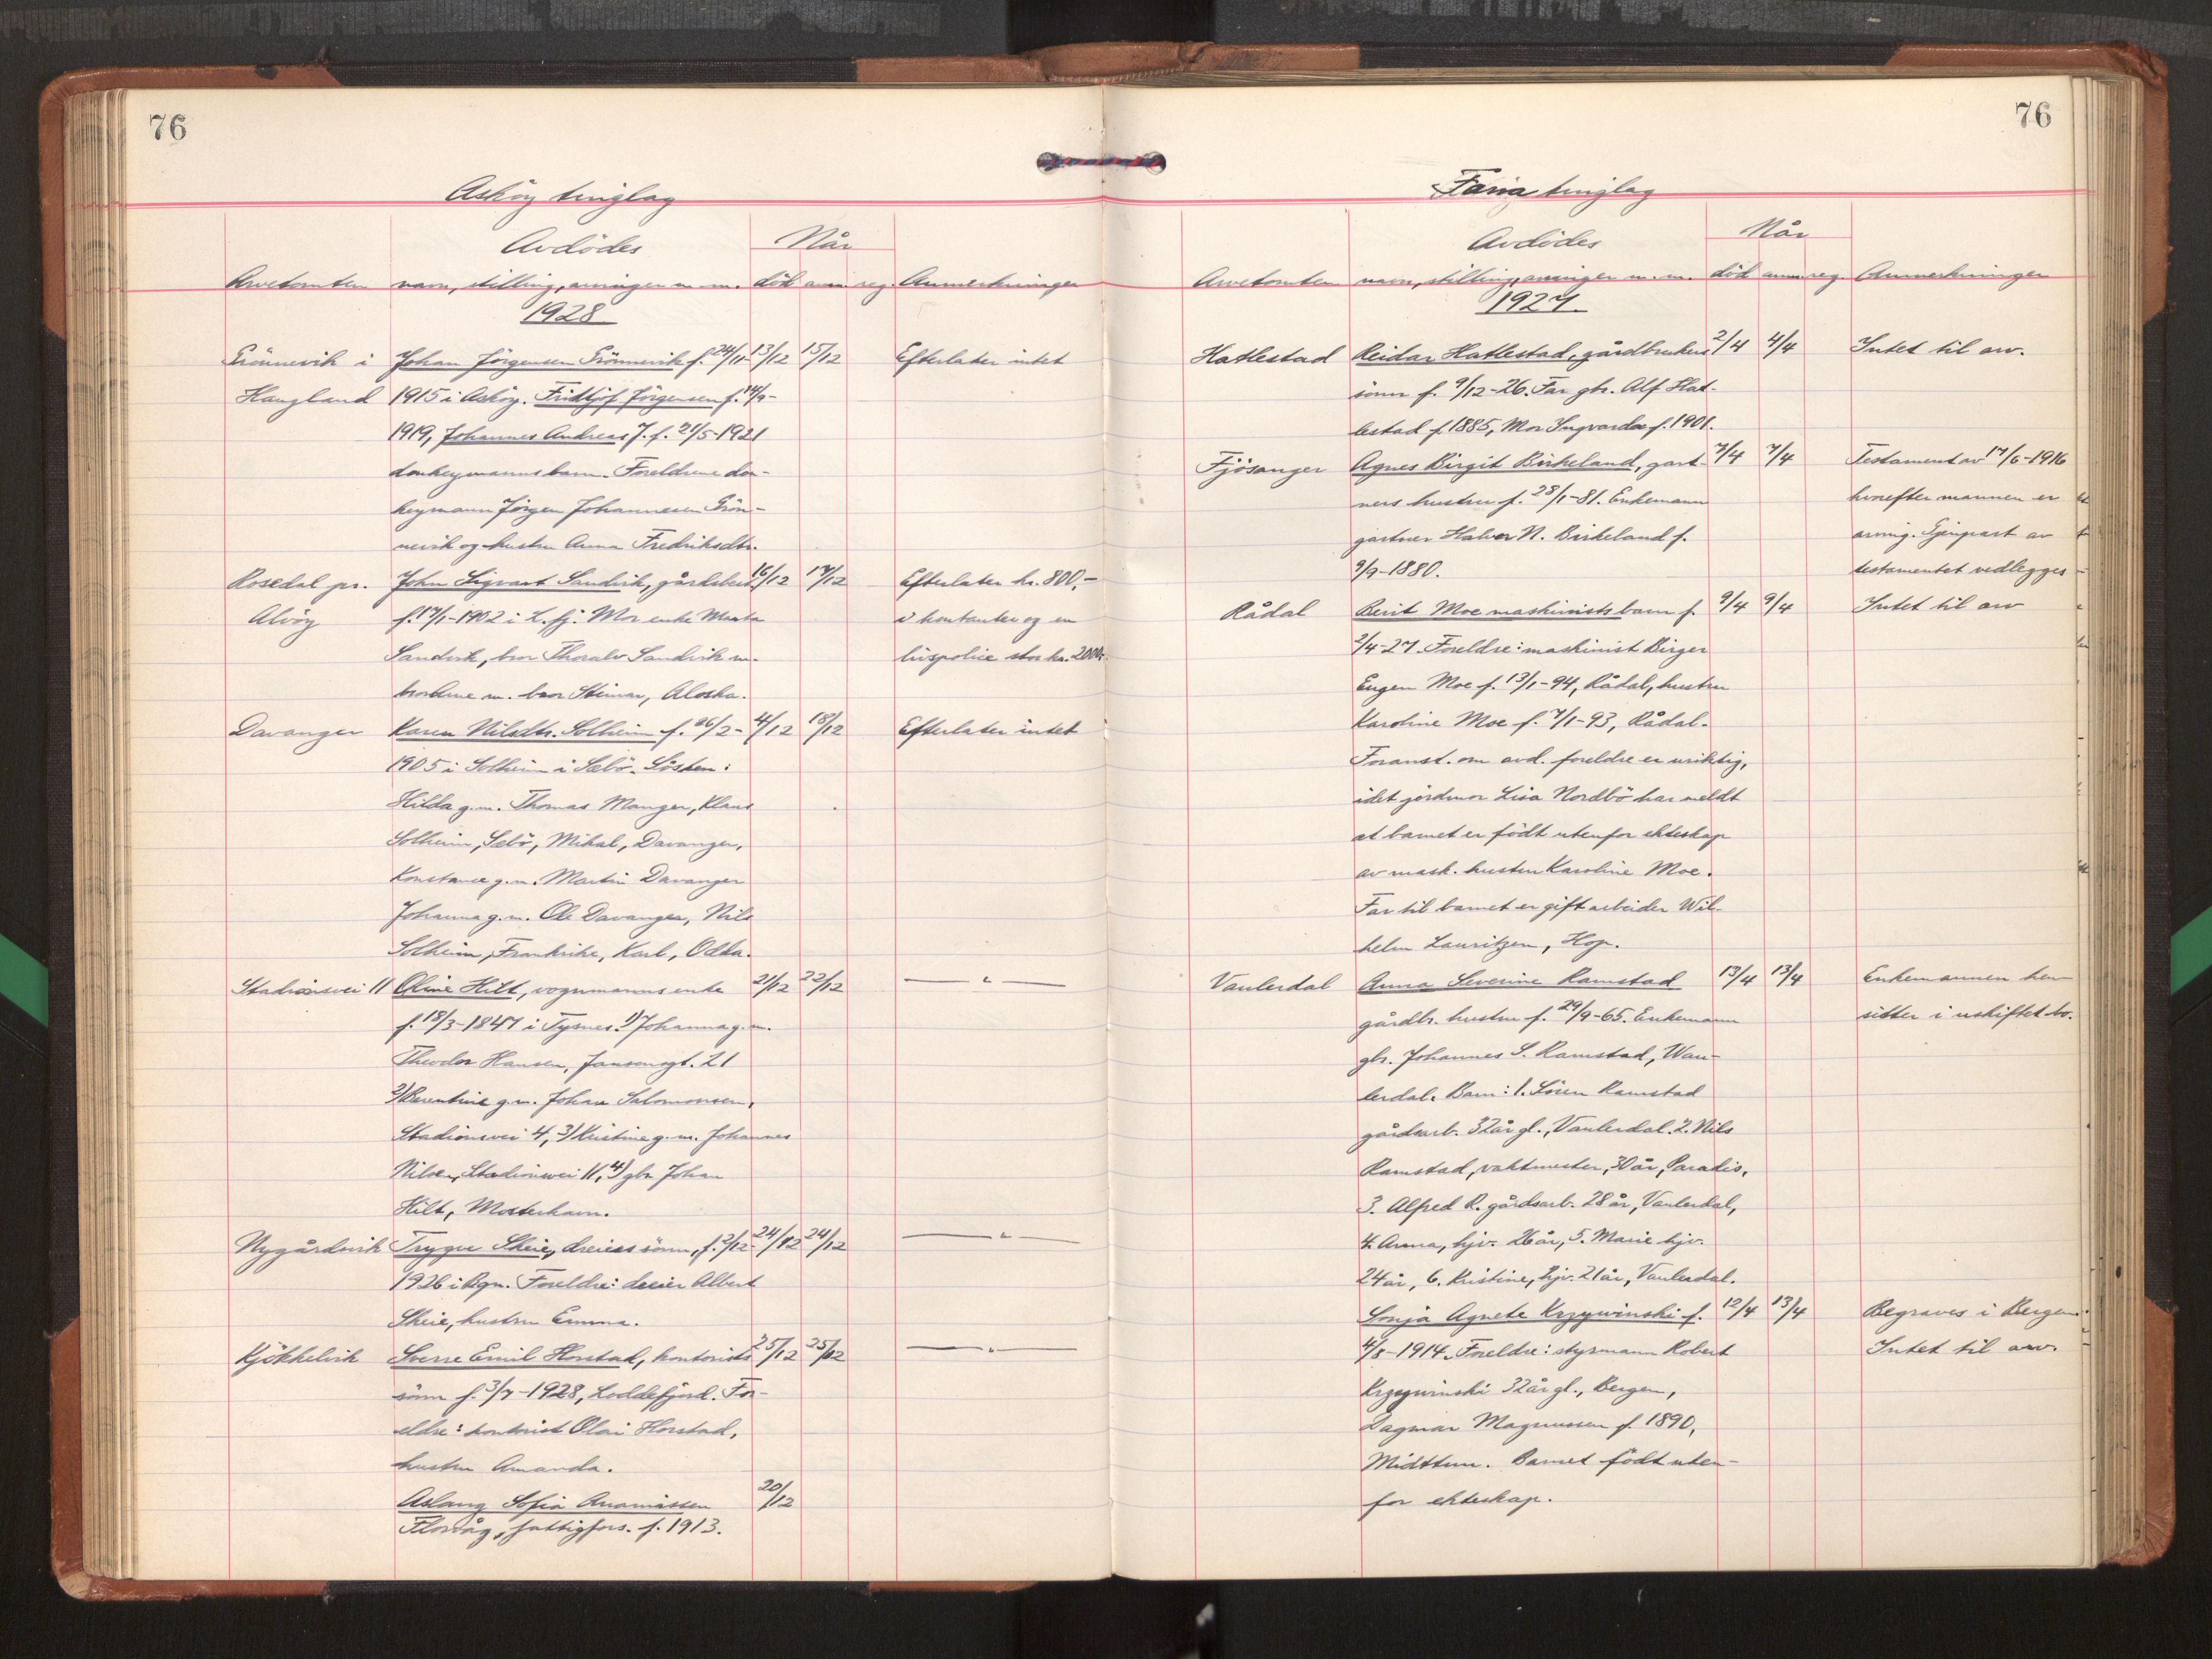 76
Asköy tinglag
Avdödes
Når
Arvetomten navn, stilling, arvinger m. m. död anm. reg. Anmerkninger
1928
Grönnevik i Johan Jörgensen Grönnevik f. 24/11- 13/12 15/12 Efterlater intet
Haugland 1915 i Asköy. Fridtjof Jörgensen f. 14/9-
1919, Johannes Andreas J. f. 21/5-1921
donkeymanns barn. Foreldrene don-
keymann Jörgen Johannesen Grön-
nevik og hustru Anna Fredriksdtr.
Rosedal pr. John Sigvart Sandvik, gårdsbest. 16/12 17/12 Efterlater kr. 800,-
Alvöy f. 17/1-1902 i L. fj. Mor enke Marta i kontanter og en
Sandvik, bror Thoralv Sandvik m. livspolice stor kr. 2000,-
bror Arne m. bror Steinar, Alaska.
Davanger Karen Nilsdtr. Solheim f. 26/2- 4/12 18/12 Efterlater intet
1905 i Solheim i Sæbö. Sösken:
Hilda g. m. Thomas Manger, Klaus
Solheim, Sæbö, Mikal, Davanger,
Konstance g. m. Martin Davanger
Johanna g. m. Ole Davanger, Nils
Solheim, Frankrike, Karl, Odda.
Stadionsvei 11 Oline Hilt, vognmanns enke 21/12 22/12 — " —
f. 18/3-1847 i Tysnes. 1) Johanna g. m.
Theodor Hansen, Jansonsgt. 21
2) Berentine g. m. Johan Salomonsen,
Stadionsvei 4, 3) Kristine g. m. Johannes
Nilsen, Stadionsvei 11, 4) gbr. Johan
Hilt, Mosterhavn.
Nygårdsvik Trygve Skeie, dreiers sönn, f. 2/12- 24/12 24/12 — " —
1926 i Bgn. Foreldre: dreier Albert
Skeie, hustru Emma.
Kjökkelvik Sverre Emil Horstad, kontorists 25/12 25/12 — " —
sönn f. 3/7-1928, Loddefjord. For-
eldre: kontorist Olai Horstad,
hustru Amanda.
Aslaug Sofia Ananiassen 20/12
Florvåg, fattigfors. f. 1913.
76
Fana tinglag
Avdödes
Når
Arvetomten navn, stilling, arvinger m. m. död anm. reg. Anmerkninger
1927.
Hatlestad Reidar Hatlestad, gårdbrukers 2/4 4/4 Intet til arv.
sönn f. 9/12-26. Far gbr. Alf Hat-
lestad f. 1885, Mor Ingvarda f. 1901.
Fjösanger Agnes Birgit Birkeland, gart- 7/4 7/4 Testament av 17/6-1916
ners hustru f. 28/1-81. Enkemann hvorefter mannen er
gartner Halvor N. Birkeland f. arving. Gjenpart av
9/9-1880. testamentet vedlegges
Rådal Berit Moe maskinists barn f. 9/4 9/4 Intet til arv
2/4-27. Foreldre: maskinist Birger
Eugen Moe f. 13/1-94, Rådal, hustru
Karoline Moe f. 7/1-93, Rådal.
Foranst. om avd. foreldre er uriktig,
idet jordmor Lisa Nordbö har meldt
at barnet er födt utenfor ekteskap
av mask. hustru Karoline Moe.
Far til barnet er gift arbeider Wil-
helm Lauritzen, Hop.
Vanlerdal Anna Severine Ramstad 13/4 13/4 Enkemannen hen-
gårdbr. hustru f. 29/9-65. Enkemann sitter i uskiftet bo.
gbr. Johannes S. Ramstad, Wan-
lerdal. Barn: 1. Sören Ramstad
gårdsarb. 32 år gl., Vanlerdal. 2. Nils
Ramstad, vaktmester, 30 år, Paradis.
3. Alfred R. gårdsarb. 28 år, Vanlerdal,
4. Anna, hjv. 26 år, 5. Marie hjv.
24 år, 6. Kristine, hjv. 21 år, Vanlerdal.
Sonja Agnete Krzywinski f. 12/4 13/4 Begraves i Bergen.
4/8-1914. Foreldre: styrmann Robert Intet til arv.
Krzywinski 32 år gl., Bergen,
Dagmar Magnussen f. 1890,
Midttun. Barnet födt uten-
for ekteskap.